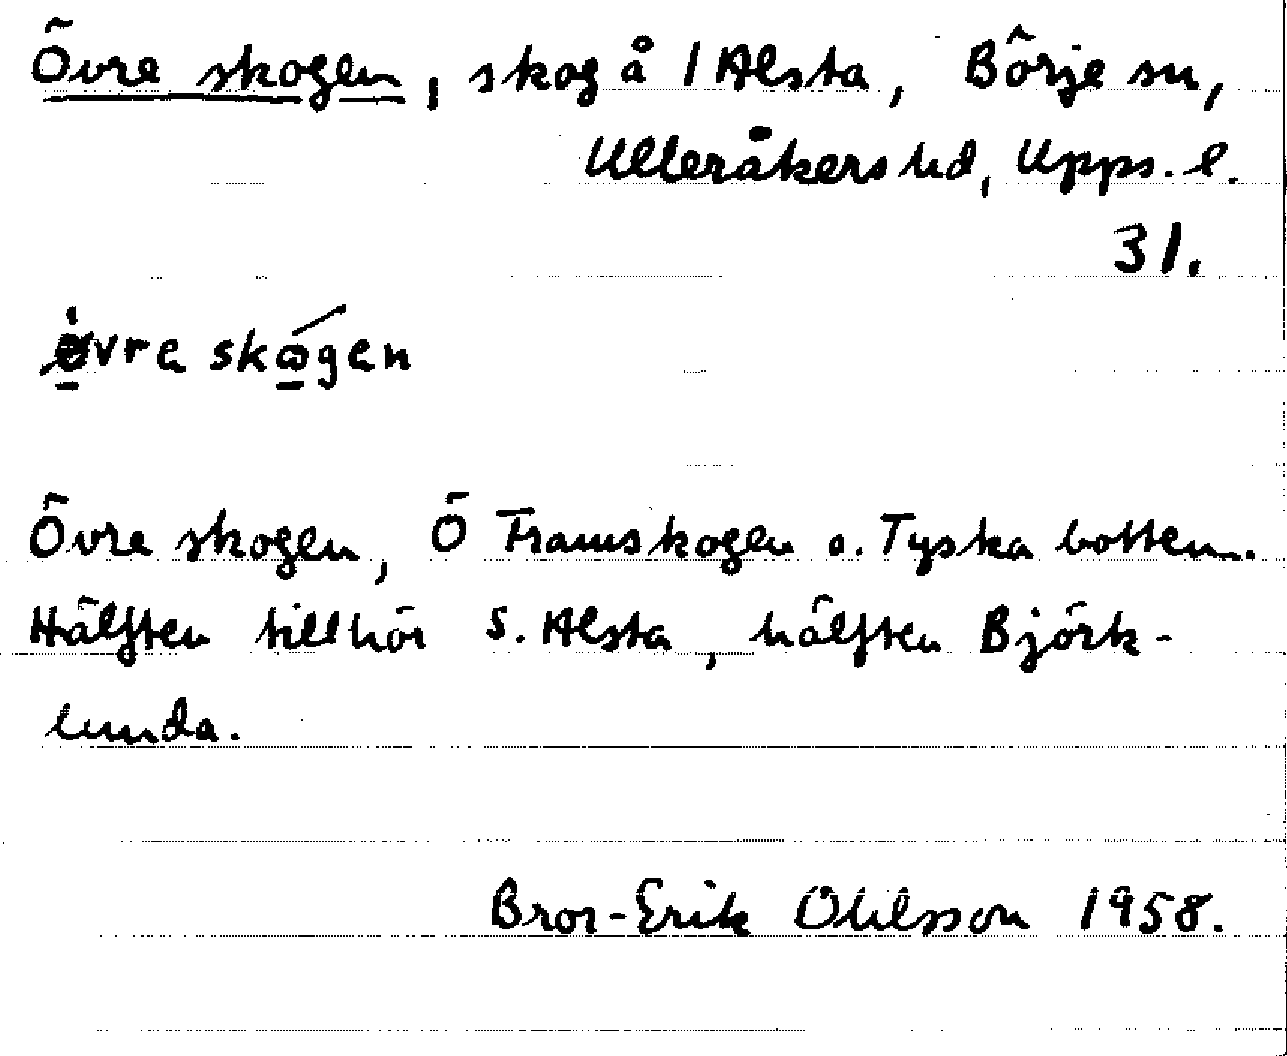 Övre skogen, skog å 1 Alsta, Börje sn,
Ulleråkers hd, Upps. l.
31.
övre skogen
Övre skogen, Ö Framskogen o. Tyska botten.
Hälften tillhör S. Alsta, hälften Björk-
lunda.
Bror-Erik Ohlsson 1958.